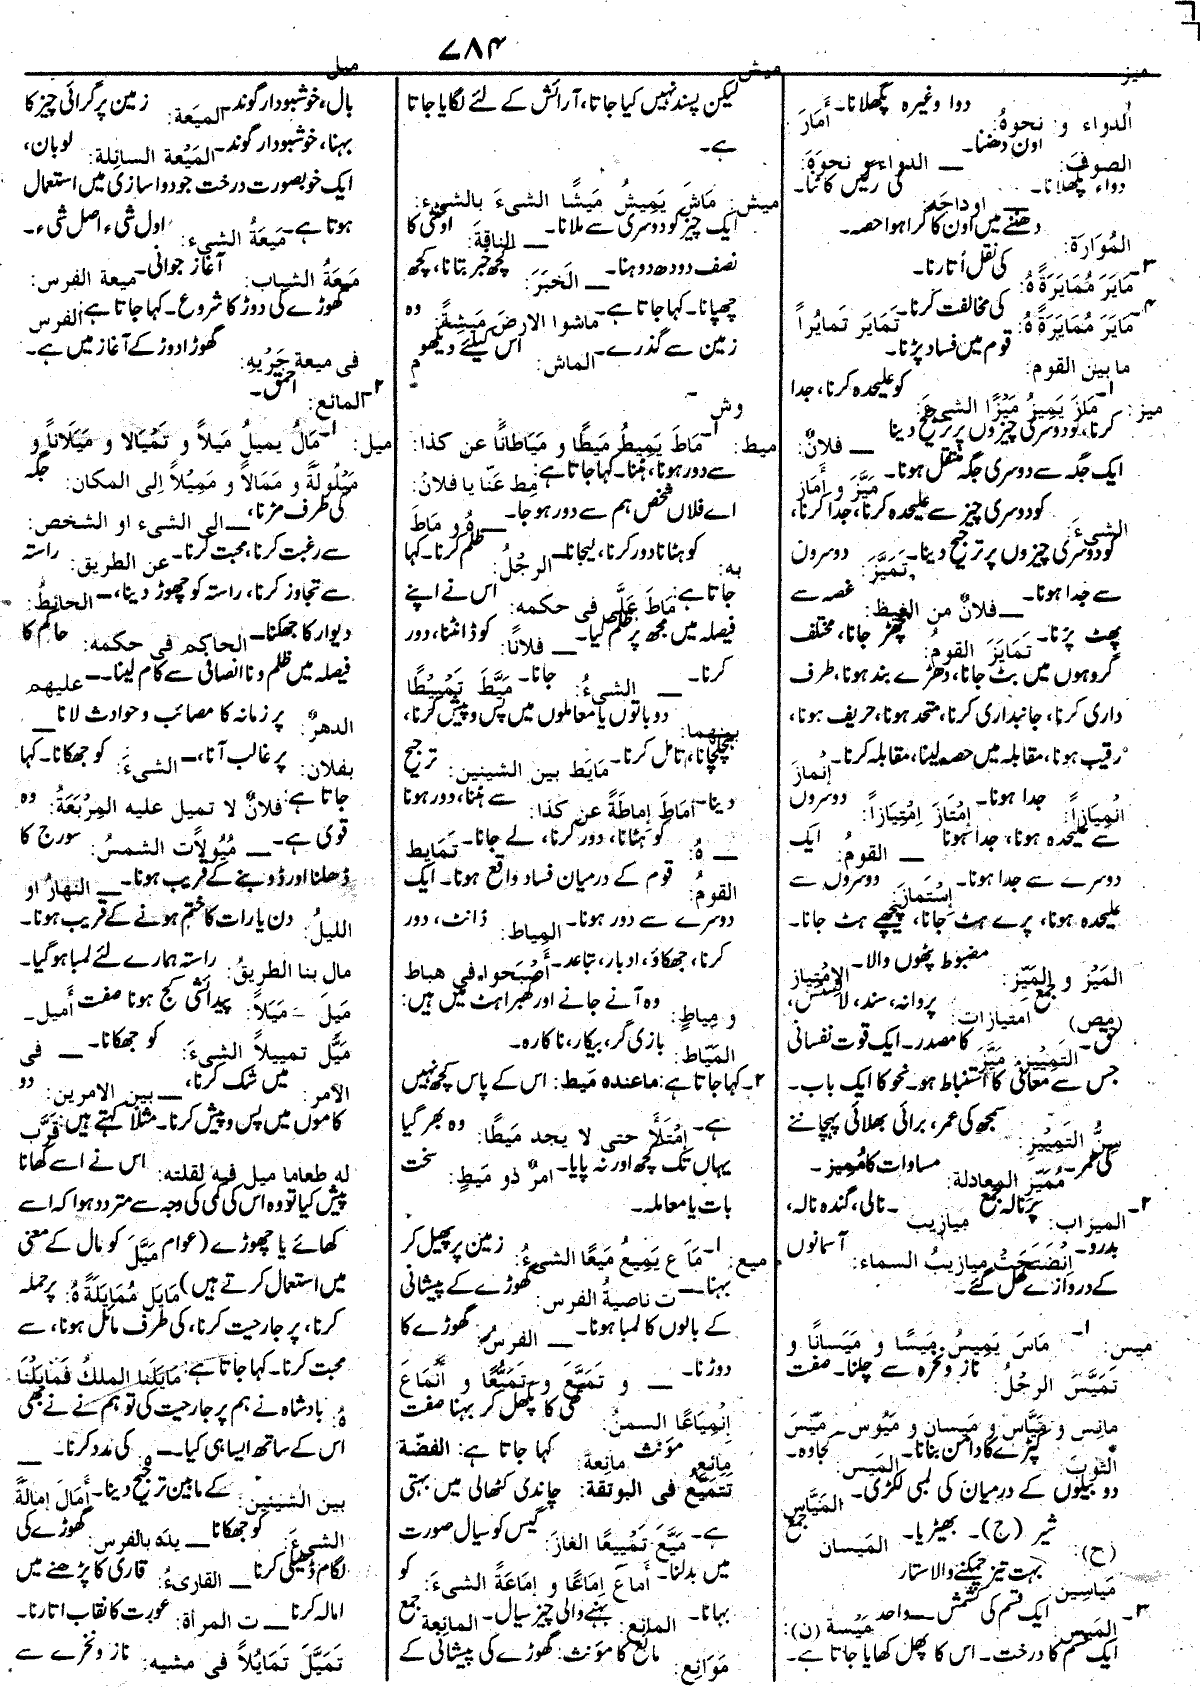 ۷۸۴
میز
میش
میل
الدواء و نحوہُ: دوا وغیرہ پگھلانا۔ أَمَارَ
الصوفَ: اون دھننا۔ __ الدواءو نحوَہ:
دواء پگھلانا۔ __ اوداجَہ: کی رگیں کاٹنا۔
المُوَارَة: دھننے میں اون کا گرا ہوا حصہ۔
۳۔ مَایَرَ مُمَایَرَةً ہُ: کی نقل اُتارنا۔
۴۔ مَایَرَ مُمَایَرَةً ہُ: کی مخالفت کرنا۔ تَمَایَر تَمایُراً
ما بین القوم: قوم میں فساد پڑنا۔
میز: ۱۔ مَازَ یَمِیزُ مَیْزًا الشیءَ: کو علیحدہ کرنا، جدا
کرنا، کو دوسری چیزوں پر ترجیح دینا __ فلانٌ:
ایک جگہ سے دوسری جگہ منتقل ہونا۔ مَیَّزَ و أَمَاز
الشیءَ: کو دوسری چیز سے علیحدہ کرنا، جدا کرنا،
کو دوسری چیزوں پر ترجیح دینا۔ تَمَیَّزَ: دوسروں
سے جدا ہونا۔ __ فلانٌ من الغیظ: غصہ سے
پھٹ پڑنا۔ تَمَایَزَ القومُ: بچھڑ جانا، مختلف
گروہوں میں بٹ جانا، دھڑے بند ہونا، طرف
داری کرنا، جانبداری کرنا، متحد ہونا، حریف ہونا،
رقیب ہونا، مقابلہ میں حصہ لینا، مقابلہ کرنا۔ اِنْمازَ
انْمِیَازاً: جدا ہونا۔ اِمْتَازَ اِمْتِیَازاً: دوسروں
سے علیحدہ ہونا، جدا ہونا __ القومُ: ایک
دوسرے سے جدا ہونا۔ اِسْتَمَازَ: دوسروں سے
علیحدہ ہونا، پرے ہٹ جانا، پیچھے ہٹ جانا۔
المَیْز و المَیِّز: مضبوط پٹھوں والا۔ الاِمْتِیاز
(مص) جمع امتیازات: پروانہ، سند، لائسنس،
حق۔ التَمْیِیْز: مَیَّزَ کا مصدر۔ ایک قوت نفسانی
جس سے معانی کا استنباط ہو۔ نحو کا ایک باب۔
سِنُّ التَمْیِیْز: سمجھ کی عمر، برائی بھلائی پہچاننے
کی عمر۔ مُمَیِّز المعادلة: مساوات کا مُمیِز۔
۲۔ المیزاب: پرنالہ جمع میازیب۔ نالی، گندہ نالہ،
بدرو۔ اِنْفَتَحَتْ میازیبُ السماء: آسمانوں
کے دروازے کھل گئے۔
میس: ۱۔ مَاسَ یَمِیسُ مَیسًا و مَیَسَانًا و
تَمَیَّسَ الرجلُ: ناز و نخرہ سے چلنا۔ صفت
مائِس و مَیَّاس و مَیسان و مَیُوس۔ مَیَّسَ
الثوبَ: کپڑے کا دامن بنانا۔ المَیس: کجاوہ۔
دو بیلوں کے درمیان کی لمبی لکڑی۔ المَیَّاس
(ح): شیر (ج)۔ بھیڑیا۔ المَیسان جمع
میاسین: بہت تیز چمکنے والا ستارہ
۳۔ المَیس: ایک قسم کی کشمش __ واحد مَیْسة (ن):
ایک قسم کا درخت۔ اس کا پھل کھایا جاتا ہے۔
لیکن پسند نہیں کیا جاتا، آرائش کے لئے لگایا جاتا
ہے۔
میش: مَاشَ یَمِیشُ مَیشًا الشیءَ بالشیءِ:
ایک چیز کو دوسری سے ملانا۔ __ الناقةَ: اونٹنی کا
نصف دودھ دوہنا۔ __ الخَبَرَ: کچھ خبر بتانا، کچھ
چھپانا۔ کہا جاتا ہے۔ ماشوا الارضَ مَیْشةً: وہ
زمین سے گذرے۔ الماش: اس کیلئے دیکھو م
وش ۔
میط: ۱۔ مَاطَ یَمِیطُ مَیطًا و مَیَاطَانًا عن کذا:
سے دور ہونا، ہٹنا۔ کہا جاتا ہے: مِط عنّا یا فلانُ:
اے فلاں شخص ہم سے دور ہو جا۔ __ ہُ و مَاطَ
بہ: کو ہٹانا دور کرنا، لیجانا۔ الرجلُ: ظلم کرنا۔ کہا
جاتا ہے: مَاطَ عَلَیَّ فی حکمہ: اس نے اپنے
فیصلہ میں مجھ پر ظلم کیا۔ __ فلانًا: کو ڈانٹنا، دور
کرنا۔ __ الشیءُ: جانا۔ مَیَّطَ تَمْیِیطًا
بینھما: دو باتوں یا معاملوں میں پس و پیش کرنا،
ہچکچانا، تامل کرنا۔ مَایَط بین الشیئین: ترجیح
دینا۔ أمَاطَ اِماطَةً عن کذا: سے ہٹنا، دور ہونا
__ ہُ: کو ہٹانا، دور کرنا، لے جانا۔ تَمَایَط
القومُ: قوم کے درمیان فساد واقع ہونا۔ ایک
دوسرے سے دور ہونا۔ المِیاط: ڈانٹ، دور
کرنا، جھکاؤ، ادبار، تباعد۔ أَصْبَحواء فی ھیاط
و مِیاطٍ: وہ آنے جانے اور گھبراہٹ میں ہیں:
المَیَّاط: بازی گر، بیکار، ناکارہ۔
۲۔ کہا جاتا ہے: ماعندہ مَیط: اس کے پاس کچھ نہیں
ہے۔ اِمْتَلَأَ حتی لا یجد مَیطًا: وہ بھر گیا
یہاں تک کچھ اور نہ پایا۔ امرٌ ذو مَیطٍ: سخت
بات یا معاملہ۔
میع: ۱۔ مَاعَ یَمِیعُ مَیعًا الشیءُ: زمین پر پھیل کر
بہنا۔ __ ت ناصیةُ الفرس: گھوڑے کے پیشانی
کے بالوں کا لمبا ہونا۔ __ الفرسُ: گھوڑے کا
دوڑنا۔ __ و تَمَیَّعَ و تَمَیُّعًا و اَنْمَاعَ
اِنْمِیاعًا السمنُ: گھی کا پگھل کر بہنا صفت
مَائِع مؤنث مائِعة: کہا جاتا ہے: الفضّة
تَتَمَیَّعُ فی البوتقة: چاندی کٹھالی میں بہتی
ہے۔ مَیَّعَ تَمْیِیعًا الغازَ: گیس کو سیال صورت
میں بدلنا۔ أماعَ اِمَاعًا و اِمَاعَةً الشیءَ: کو
بہانا۔ المائع: بہنے والی چیز سیال۔ المائِعة جمع
مَوَائِع: مائع کا مؤنث: گھوڑے کی پیشانی کے
بال، خوشبودار گوند۔ المَیعَة: زمین پر گرائی چیز کا
بہنا، خوشبودار گوند۔ المَیْعة السائلة: لوبان،
ایک خوبصورت درخت جو دوا سازی میں استعمال
ہوتا ہے۔ مَیعَةُ الشیء: اول شیء اصل شیء۔
مَیعَةُ الشباب: آغاز جوانی۔ میعة الفرس:
گھوڑے کی دوڑ کا شروع۔ کہا جاتا ہے: الفرس
فی میعة جَرْیِہِ: گھوڑا دوڑ کے آغاز میں ہے۔
۲۔ المائع: احمق۔
میل: ۱۔ مَالَ یمیلُ مَیلاً و تَمْیَالا و مَیَلاناً و
مَیْلُولَةً و مَمَالاً و مَمِیْلاً اِلی المکان: جگہ
کی طرف مڑنا، __ الی الشیء او الشخص:
سے رغبت کرنا، محبت کرنا۔ عن الطریق: راستہ
سے تجاوز کرنا، راستہ کو چھوڑ دینا، __ الحائطُ:
دیوار کا جھکنا۔ __ الحاکم فی حکمہ: حاکم کا
فیصلہ میں ظلم و نا انصافی سے کام لینا۔ __ علیھم
الدھرُ: پر زمانہ کا مصائب و حوادث لانا __
بفلان: پر غالب آنا، __ الشیءَ: کو جھکانا۔ کہا
جاتا ہے: فلانٌ لا تمیل علیہ المِرْبَعَةُ: وہ
قوی ہے۔ __ مُیُولَات الشمسُ: سورج کا
ڈھلنا اور ڈوبنے کے قریب ہونا۔ __ النھارُ او
اللیلُ: دن یا رات کا ختم ہونے کے قریب ہونا۔
مال بنا الطریقُ: راستہ ہمارے لئے لمبا ہو گیا۔
مَیِلَ _ مَیَلاً: پیدائشی کج ہونا صفت أَمیل۔
مَیَّل تمییلاً الشیءَ: کو جھکانا۔ __ فی
الأمر: میں شک کرنا، __ بین الامرین: دو
کاموں میں پس و پیش کرنا۔ مثلاً کہتے ہیں: قَرَّب
لہ طعاما میل فیہ لقلتہ: اس نے اسے کھانا
پیش کیا تو وہ اس کی کمی کی وجہ سے متردد ہوا کہ اسے
کھائے یا چھوڑے (عوام مَیَّلَ کو مال کے معنی
میں استعمال کرتے ہیں) مَایَل مُمَایَلَةً ہُ: پر حملہ
کرنا، پر جارحیت کرنا، کی طرف مائل ہونا، سے
محبت کرنا۔ کہا جاتا ہے: مَایَلَنا الملكُ فَمَایَلْنَا
ہُ: بادشاہ نے ہم پر جارحیت کی تو ہم نے بھی
اس کے ساتھ ایسا ہی کیا۔ __ ہُ کی مدد کرنا۔ __
بین الشیئین: کے مابین ترجیح دینا۔ أَمَالَ اِمالَةً
الشیءَ: کو جھکانا __ یدَہ بالفرس: گھوڑے کی
لگام ڈھیلی کرنا __ القارِیءُ: قاری کا پڑھنے میں
امالہ کرنا __ ت المراة: عورت کا نقاب اتارنا۔
تَمَیَّلَ تَمَایُلاً فی مشیہ: ناز و نخرے سے